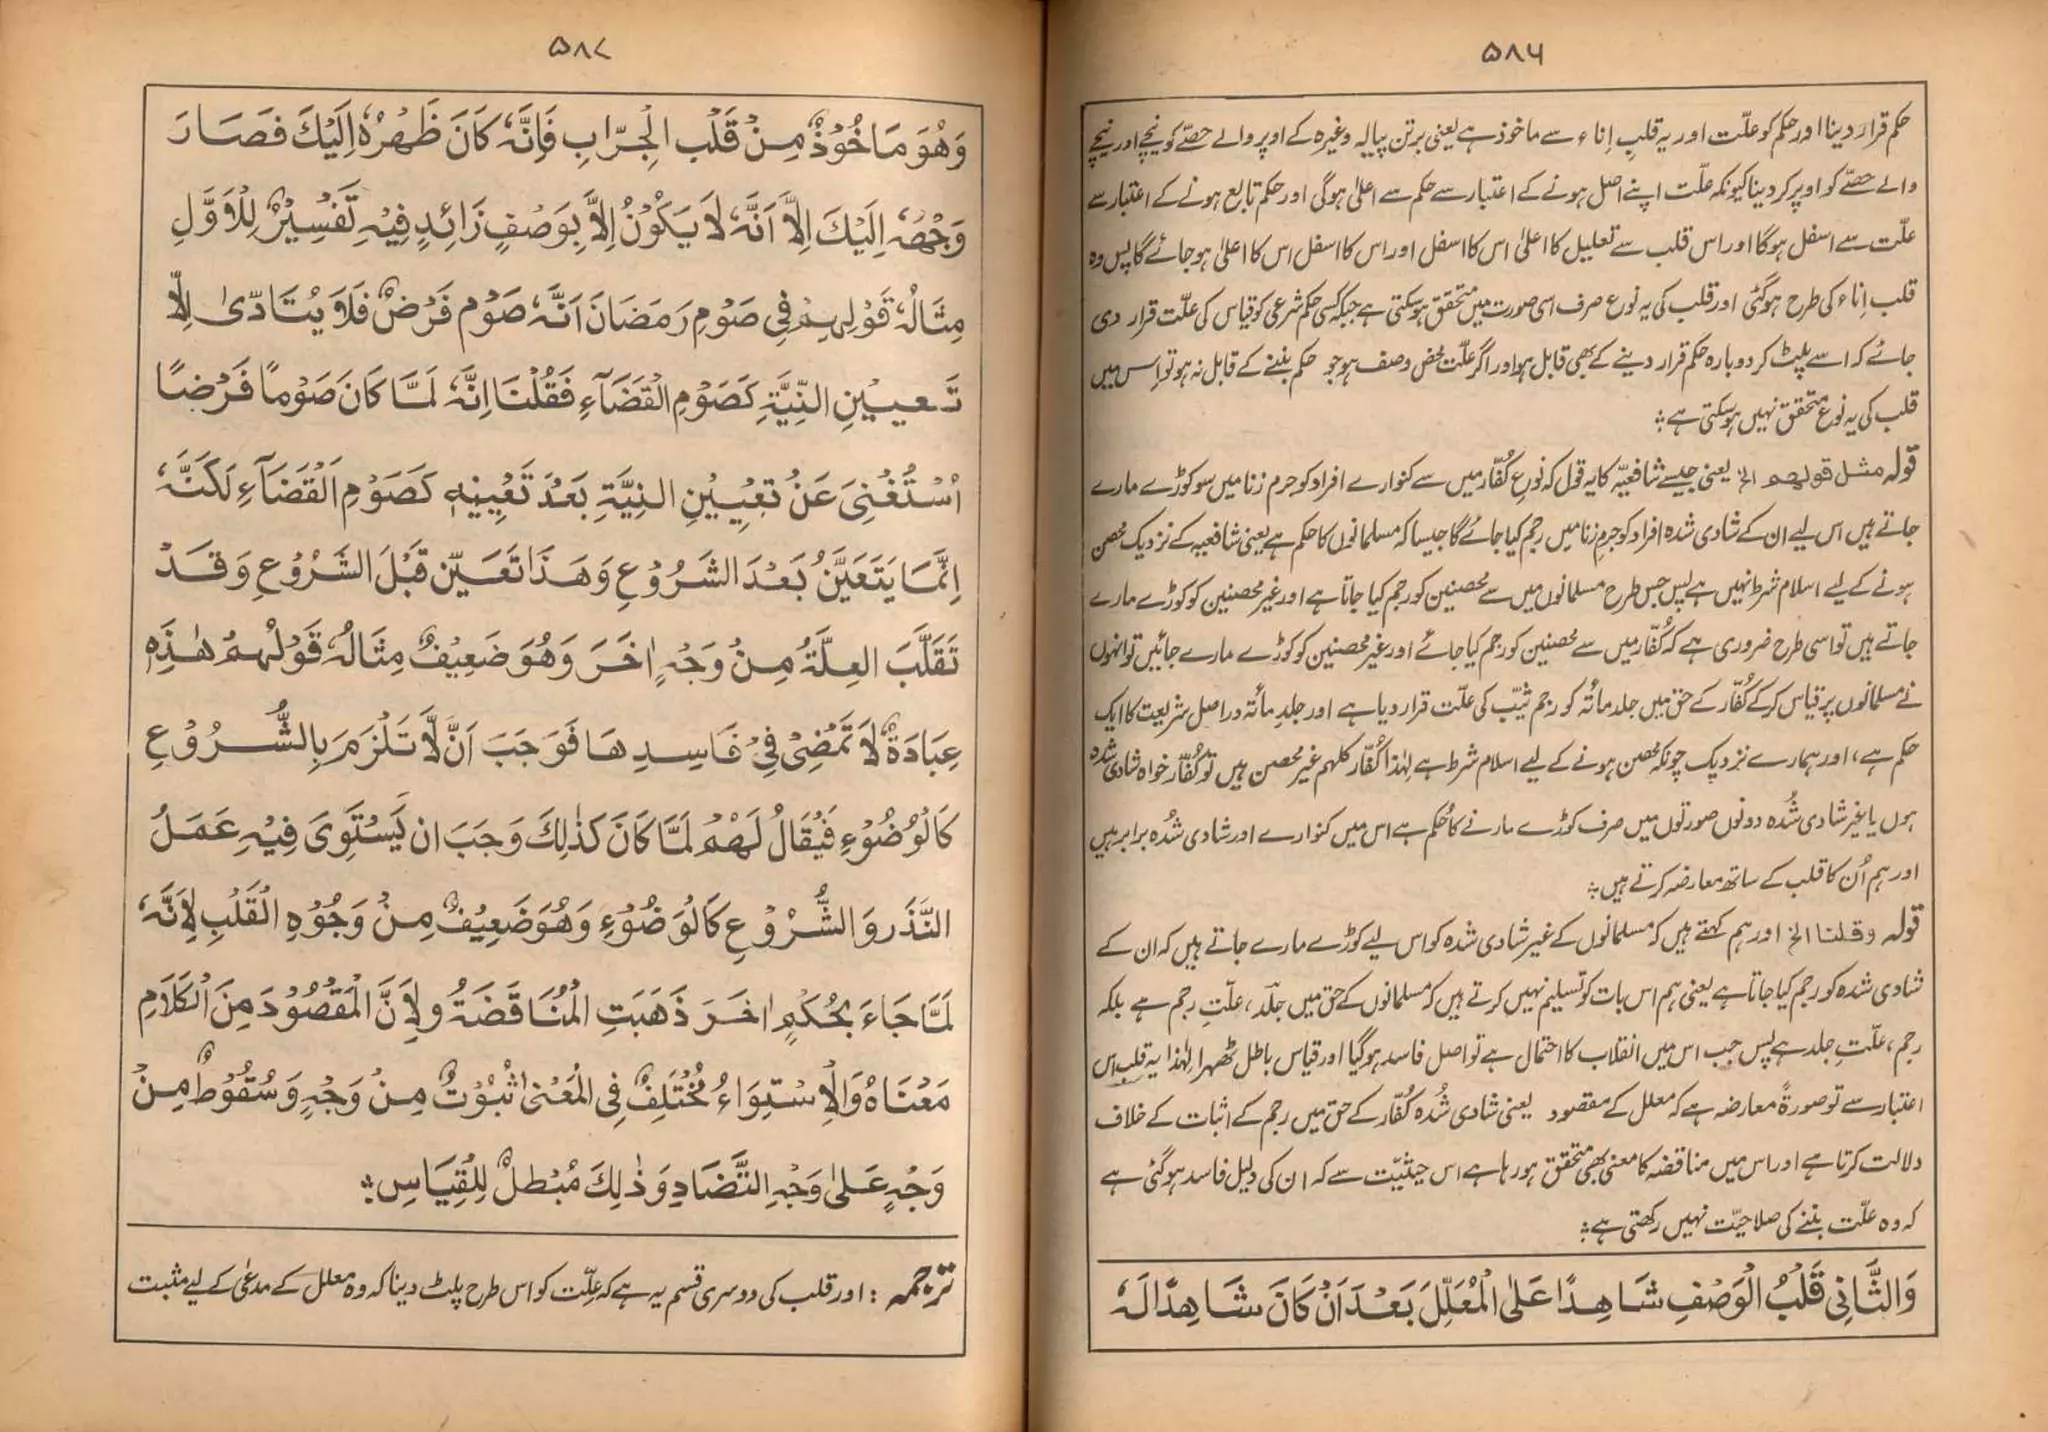 ۵۸۶
حکم قرار دینا اور حکم کو علّت اور یہ قلبِ اِناء سے ماخوذ ہے یعنی برتن پیالہ وغیرہ کے اوپر والے حصّے کو نیچے اور نیچے
والے حصّے کو اوپر کر دینا کیونکہ علّت اپنے اصل ہونے کے اعتبار سے حکم سے اعلیٰ ہوگی اور حکم تابع ہونے کے اعتبار سے
علّت سے اسفل ہوگا اور اس قلب سے تعلیل کا اعلیٰ اس کا اسفل اور اس کا اسفل اس کا اعلیٰ ہو جائے گا پس وہ
قلب اِناء کی طرح ہوگئی اور قلب کی یہ نوع صرف اسی صورت میں متحقق ہوسکتی ہے جبکہ کسی حکم شرعی کو قیاس کی علّت قرار دی
جائے کہ اسے پلٹ کر دوبارہ حکم قرار دینے کے بھی قابل ہو اور اگر علّت محض وصف ہو جو حکم بننے کے قابل نہ ہو تو اِس میں
قلب کی یہ نوع متحقق نہیں ہوسکتی ہے ؞
قولہ مثل قولہم الخ یعنی جیسے شافعیّہ کا یہ قول کہ نوعِ کُفّار میں سے کنوارے افراد کو جرم زنا میں سو کوڑے مارے
جاتے ہیں اس لیے ان کے شادی شدہ افراد کو جرمِ زنا میں رجم کیا جائے گا جیسا کہ مسلمانوں کا حکم ہے یعنی شافعیہ کے نزدیک محصن
ہونے کے لیے اسلام شرط نہیں ہے پس جس طرح مسلمانوں میں سے محصنین کو رجم کیا جاتا ہے اور غیر محصنین کو کوڑے مارے
جاتے ہیں تو اسی طرح ضروری ہے کہ کُفّار میں سے محصنین کو رجم کیا جائے اور غیر محصنین کو کوڑے مارے جائیں تو انہوں
نے مسلمانوں پر قیاس کرکے کُفّار کے حق میں جلد مائۃ کو رجم ثیّب کی علّت قرار دیا ہے اور جلدِ مائۃ دراصل شریعت کا ایک
حکم ہے، اور ہمارے نزدیک چونکہ محصن ہونے کے لیے اسلام شرط ہے لہٰذا کُفّار کلہم غیر محصن ہیں تو کُفّار خواہ شادی شدہ
ہوں یا غیر شادی شُدہ دونوں صورتوں میں صرف کوڑے مارنے کا حُکم ہے اس میں کنوارے اور شادی شُدہ برابر ہیں
اور ہم اُن کا قلب کے ساتھ معارضہ کرتے ہیں ؞
قولہ وقلنا الخ اور ہم کہتے ہیں کہ مسلمانوں کے غیر شادی شدہ کو اس لیے کوڑے مارے جاتے ہیں کہ ان کے
شادی شدہ کو رجم کیا جاتا ہے یعنی ہم اس بات کو تسلیم نہیں کرتے ہیں کہ مسلمانوں کے حق میں جلد، علّتِ رجم ہے بلکہ
رجم، علّتِ جلد ہے پس جب اس میں انقلاب کا احتمال ہے تو اصل فاسد ہوگیا اور قیاس باطل ٹھہرا لہٰذا یہ قلب اس
اعتبار سے تو صورۃً معارضہ ہے کہ معلل کے مقصود یعنی شادی شُدہ کُفّار کے حق میں رجم کے اثبات کے خلاف
دلالت کرتا ہے اور اس میں مناقضہ کا معنٰی بھی متحقق ہو رہا ہے اس حیثیّت سے کہ ان کی دلیل فاسد ہوگئی ہے
کہ وہ علّت بننے کی صلاحیّت نہیں رکھتی ہے ؞
وَالثَّانِیْ قَلْبُ الْوَصْفِ شَاھِدًا عَلَی الْمُعَلِّلِ بَعْدَ اَنْ کَانَ شَاھِدًا لَہٗ
۵۸۷
وَھُوَ مَاخُوْذٌ مِنْ قَلْبِ الْجِرَابِ فَاِنَّہٗ کَانَ ظَھْرُہٗ اِلَیْکَ فَصَارَ
وَجْھُہٗ اِلَیْکَ اِلَّا اَنَّہٗ لَا یَکُوْنُ اِلَّا بِوَصْفٍ زَائِدٍ فِیْہِ تَفْسِیْرٌ لِلْاَوَّلِ
مِثَالُہٗ قَوْلِہِمْ فِیْ صَوْمِ رَمَضَانَ اَنَّہٗ صَوْمُ فَرْضٌ فَلَا یُتَادّٰی اِلَّا
تَعْیِیْنِ النِّیَّۃِ کَصَوْمِ الْقَضَآءِ فَقُلْنَا اِنَّہٗ لَمَّا کَانَ صَوْمًا فَرْضًا
اُسْتُغْنِیَ عَنْ تَعْیِیْنِ النِیَّۃِ بَعْدَ تَعْیِیْنِہٖ کَصَوْمِ الْقَضَآءِ لٰکِنَّہٗ
اِنَّمَا یَتَعَیَّنُ بَعْدَ الشُرُوْعِ وَھٰذَا تَعَیَّنَ قَبْلَ الشُرُوْعِ وَقَدْ
تَقَلَّبَ الْعِلَّۃُ مِنْ وَجْہٍ اٰخَرَ وَھُوَ ضَعِیْفٌ مِثَالُہٗ قَوْلُہُمْ ھٰذِہٖ
عِبَادَۃٌ لَا تَمْضِیْ فِیْ فَاسِدِھَا فَوَجَبَ اَنْ لَّا تَلْزَمَ بِالشُّرُوْعِ
کَالْوُضُوْءِ فَیُقَالُ لَھُمْ لَمَّا کَانَ کَذٰلِکَ وَجَبَ ان یَسْتَوِیَ فِیْہِ عَمَلُ
النَّذَرِ وَالشُّرُوْعِ کَالْوُضُوْءِ وَھُوَ ضَعِیْفٌ مِنْ وَجُوْہِ الْقَلْبِ لِاَنَّہٗ
لَمَّا جَاءَ بِحُکْمٍ اٰخَرَ ذَھَبَتِ الْمُنَاقَضَۃُ وَلِاَنَّ الْمَقْصُوْدَ مِنَ الْکَلَامِ
مَعْنَاہُ وَالْاِسْتِوَاءُ مُخْتَلِفٌ فِی الْمَعْنٰی ثُبُوْتٌ مِنْ وَجْہٍ وَسُقُوْطٌ مِنْ
وَجْہٍ عَلٰی وَجْہِ التَّضَادِ وَذٰلِکَ مُبْطِلٌ لِلْقِیَاسِ ؞
ترجمہ : اور قلب کی دوسری قسم یہ ہے کہ علّت کو اس طرح پلٹ دینا کہ وہ معلل کے مدعٰی کے لیے مثبت